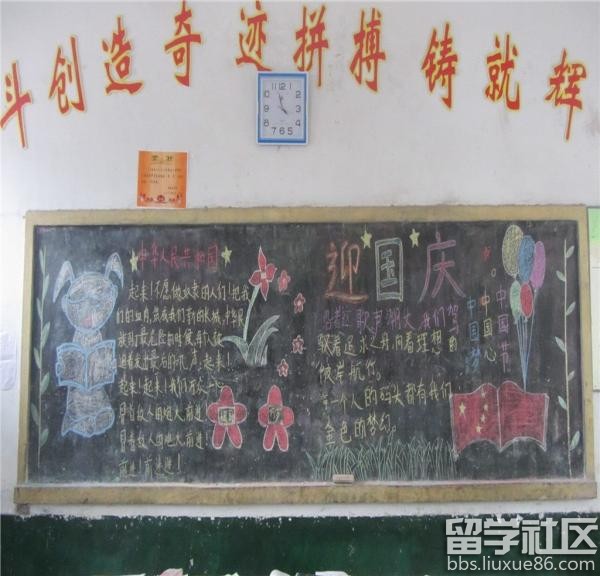 斗创造奇迹拼搏铸就辉
11 12 1
10 2
9 3
8 4
7 6 5
中华人民共和国
起来!不愿做奴隶的人们!把我
们的血肉,筑成我们新的长城,中华民
族到了最危险的时候,每个人被
迫着发出最后的吼声,起来!
起来!起来!我们万众一心
冒着敌人的炮火前进
冒着敌人的炮火前进
前进!前进!进!
迎国庆
我们驾
驶着
理想
彼岸航行。
一个人的码头都有我们
金色的梦幻。
中国节
中国心
中国梦
留学社区
bbs.liuxue86.com